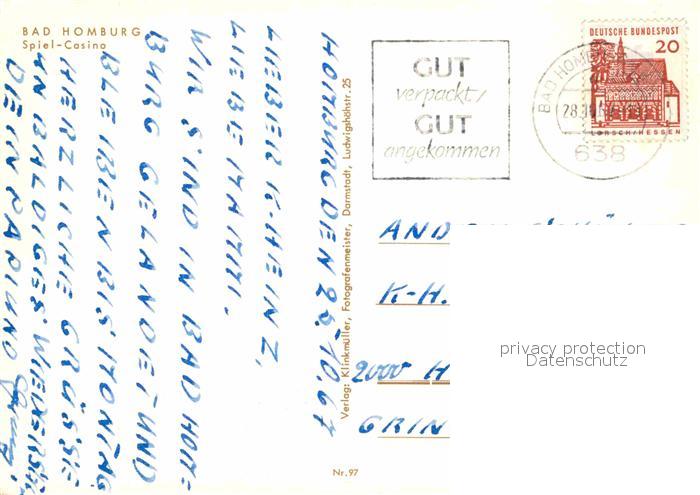 BAD HOMBURG
Spiel-Casino
HOMBURG DEN 28.10.67
LIEBER K-HEINZ,
LIEBE MAMI.
WIR SIND IN BAD HOM=
BURG GELANDET UND
BLEIBEN BIS MONTAG
HERZLICHE GRÜSSE
AN BALDIGES WIEDERSEH
DEIN PAPI UND
Verlag: Klinkmüller, Fotografenmeister, Darmstadt, Ludwigshöhstr. 25
Nr. 97
GUT
verpackt/
GUT
angekommen
BAD HOMBURG
28.10.67
638
DEUTSCHE BUNDESPOST
20
LORSCH/HESSEN
AN D
K-H.
2000 H
GRIN
privacy protection
Datenschutz